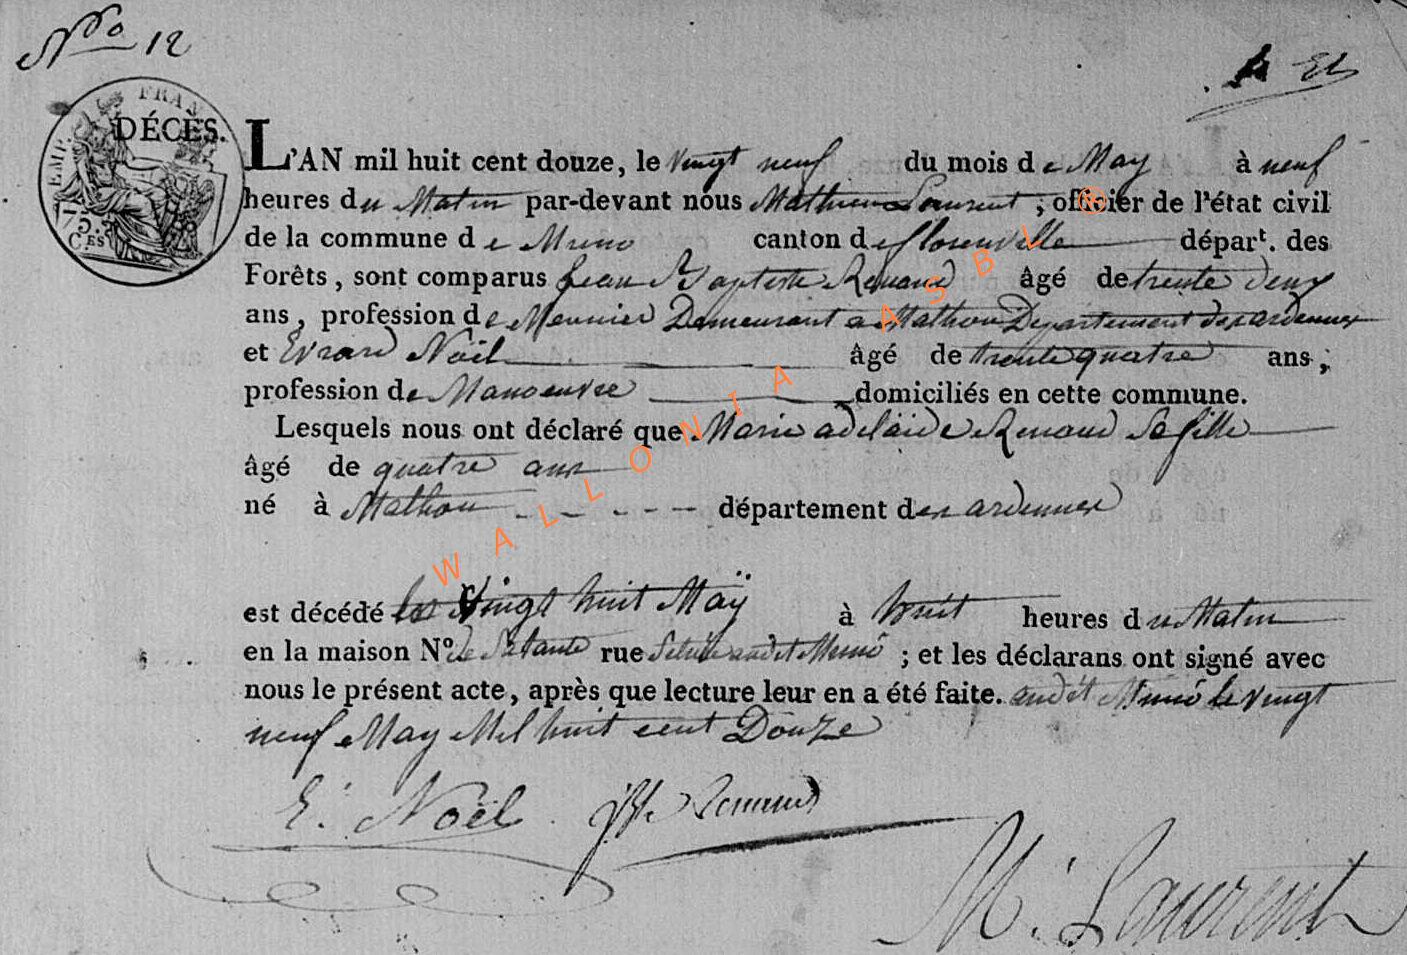 No 12
EMP. FRAN
75.
CES
DÉCÈS.
L'AN mil huit cent douze, le vingt neuf du mois de May à neuf
heures du Matin par-devant nous Mathieu Laurent, officier de l'état civil
de la commune de Muno canton de florenville départ. des
Forêts, sont comparus Jean Baptiste Renaud âgé de trente deux
ans, profession de Meunier Demeurant a Mathon Departement des ardennes
et Evrard Noël âgé de trente quatre ans,
profession de Manoeuvre domiciliés en cette commune.
Lesquels nous ont déclaré que Marie adelaïde Renaud Sa fille
âgé de quatre ans
né à Mathon département des ardennes
est décédé le Vingt huit Maÿ à huit heures du Matin
en la maison N° de rue audit Muno ; et les déclarans ont signé avec
nous le présent acte, après que lecture leur en a été faite. audit Muno le vingt
neuf May Mil huit cent Douze
E. Noël JB Renaud
M. Laurent
WALLONIA ASBL ®